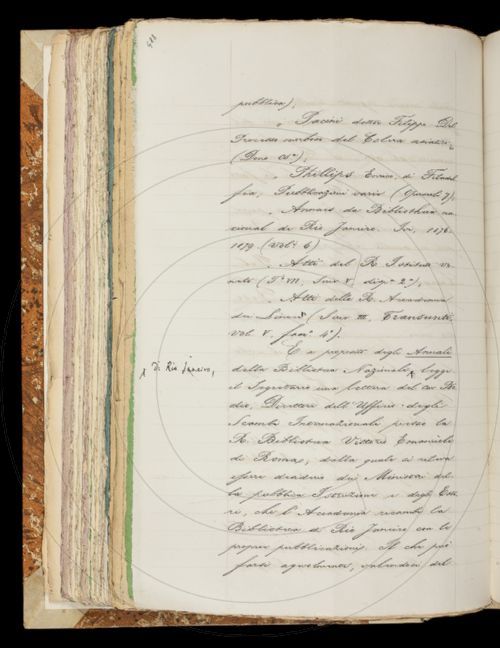 pubblica).
„ Pacini dottor Filippo. Del
Processo morboso del Colera asiatico,
(Dono
„ Phillips Enrico, di Filadel
fia, Pubblicazioni varie (Opuscoli 7).
„ Annaes da Bibliotheca na
cional do Rio Janeiro. In, 1876-
1879. (Vol.i 6)
„ Atti del R. Istituto ve
neto (T.o VII, Serie V, disp.a 2.a).
„ Atti della R. Accademia
dei Lincei (Serie III, Transunti,
Vol. V, fasc.o 4.o).
E a proposito degli Annali
della Biblioteca Nazionale, legge
di Rio Janeiro,
il Segretario una lettera del cav.
Direttore dell'Ufficio degli
Scambi Internazionali presso la
R. Biblioteca Vittorio Emanuele
di Roma, dalla quale si rileva
essere desiderio dei Ministeri del
la pubblica Istruzione e degli Este
ri, che l'Accademia ricambi la
Biblioteca di Rio Janeiro con le
proprie pubblicazioni. Il che può
farsi agevolmente, valendosi del